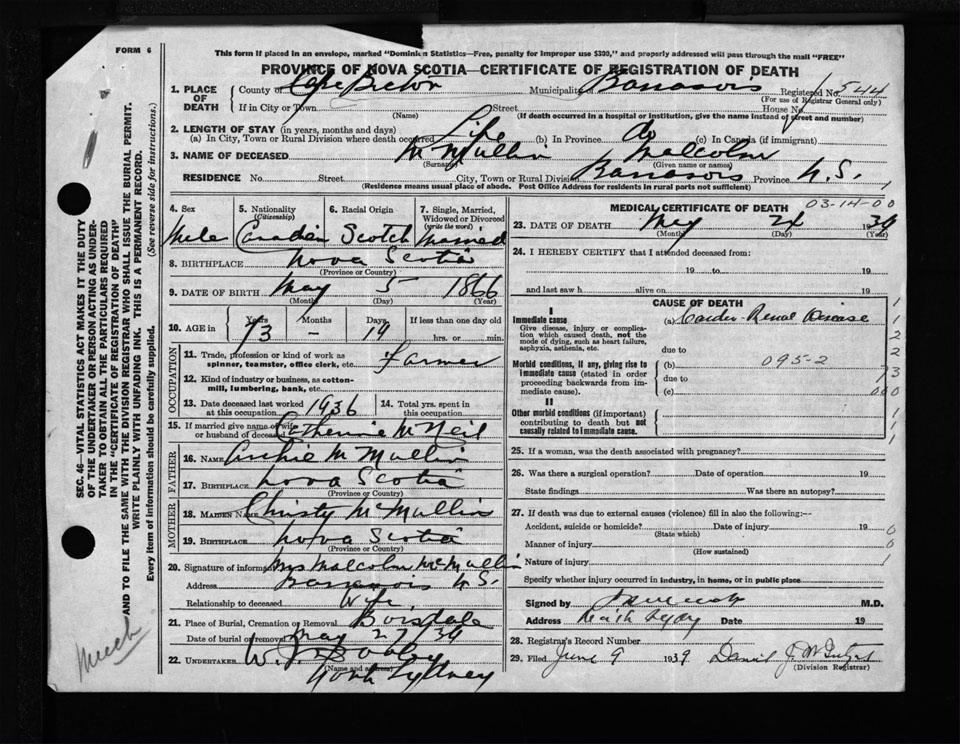 FORM 6
This form if placed in an envelope, marked "Dominion Statistics—Free, penalty for improper use $300," and properly addressed will pass through the mail "FREE"
PROVINCE OF NOVA SCOTIA—CERTIFICATE OF REGISTRATION OF DEATH
1. PLACE OF DEATH
County of Cape Breton Municipality Barrasois Registered No. 544
(For use of Registrar General only)
If in City or Town Street House No.
(Name) (If death occurred in a hospital or institution, give the name instead of street and number)
2. LENGTH OF STAY (in years, months and days)
(a) In City, Town or Rural Division where death occurred Life (b) In Province do (c) In Canada (if immigrant)
3. NAME OF DECEASED McMullin Malcolm
(Surname) (Given name or names)
RESIDENCE No. Street City, Town or Rural Division Barrasois Province N.S.
(Residence means usual place of abode. Post Office Address for residents in rural parts not sufficient) 1
4. Sex
Male
5. Nationality (Citizenship)
Canadian
6. Racial Origin
Scotch
7. Single, Married, Widowed or Divorced (write the word)
Married
8. BIRTHPLACE Nova Scotia
(Province or Country)
9. DATE OF BIRTH May 5 1866
(Month) (Day) (Year)
10. AGE in Years Months Days If less than one day old
73 - 19 hrs. or min.
OCCUPATION
11. Trade, profession or kind of work as spinner, teamster, office clerk, etc. Farmer
12. Kind of industry or business, as cotton-mill, lumbering, bank, etc.
13. Date deceased last worked at this occupation 1936
14. Total yrs. spent in this occupation
15. If married give name of wife or husband of deceased Catherine McNeil
FATHER
16. NAME Archie McMullin
17. BIRTHPLACE Nova Scotia
(Province or Country)
MOTHER
18. MAIDEN NAME Christy McMullin
19. BIRTHPLACE Nova Scotia
(Province or Country)
20. Signature of informant Mrs Malcolm McMullin
Address Barrasois N.S.
Relationship to deceased Wife
21. Place of Burial, Cremation or Removal Boisdale
Date of burial or removal May 27/39
22. UNDERTAKER W. J.
(Name and address)
North Sydney
MEDICAL CERTIFICATE OF DEATH 03-14-00
23. DATE OF DEATH May 24 1939
(Month) (Day) (Year)
24. I HEREBY CERTIFY that I attended deceased from:
19 to 19
and last saw h alive on 19
CAUSE OF DEATH
I
Immediate cause
Give disease, injury or complication which caused death, not the mode of dying, such as heart failure, asphyxia, asthenia, etc.
(a) Cardio-Renal Disease
due to
Morbid conditions, if any, giving rise to immediate cause (stated in order proceeding backwards from immediate cause).
(b) 095-2
due to
(c)
II
Other morbid conditions (if important) contributing to death but not causally related to immediate cause.
25. If a woman, was the death associated with pregnancy?
26. Was there a surgical operation? Date of operation 19
State findings Was there an autopsy?
27. If death was due to external causes (violence) fill in also the following:—
Accident, suicide or homicide? Date of injury 19
(State which)
Manner of injury
(How sustained)
Nature of injury
Specify whether injury occurred in industry, in home, or in public place
Signed by M.D.
Address Date 19
28. Registrar's Record Number
29. Filed June 9 1939 Daniel J.
(Division Registrar)
SEC. 46—VITAL STATISTICS ACT MAKES IT THE DUTY OF THE UNDERTAKER OR PERSON ACTING AS UNDERTAKER TO OBTAIN ALL THE PARTICULARS REQUIRED IN THE "CERTIFICATE OF REGISTRATION OF DEATH"
AND TO FILE THE SAME WITH THE DIVISION REGISTRAR WHO SHALL ISSUE THE BURIAL PERMIT.
WRITE PLAINLY WITH UNFADING INK. THIS IS A PERMANENT RECORD.
Every item of information should be carefully supplied. (See reverse side for instructions.)